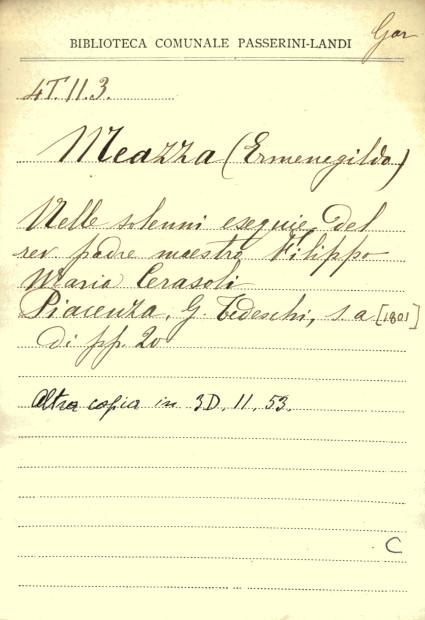 Gar
BIBLIOTECA COMUNALE PASSERINI-LANDI
4T.11.3.
Meazza (Ermenegildo)
Nelle solenni esequie del
rev padre maestro Filippo
Maria Cerasoli
Piacenza, G. Tedeschi, s. a [1801]
di pp. 20
Altra copia in 3D. 11. 53.
C